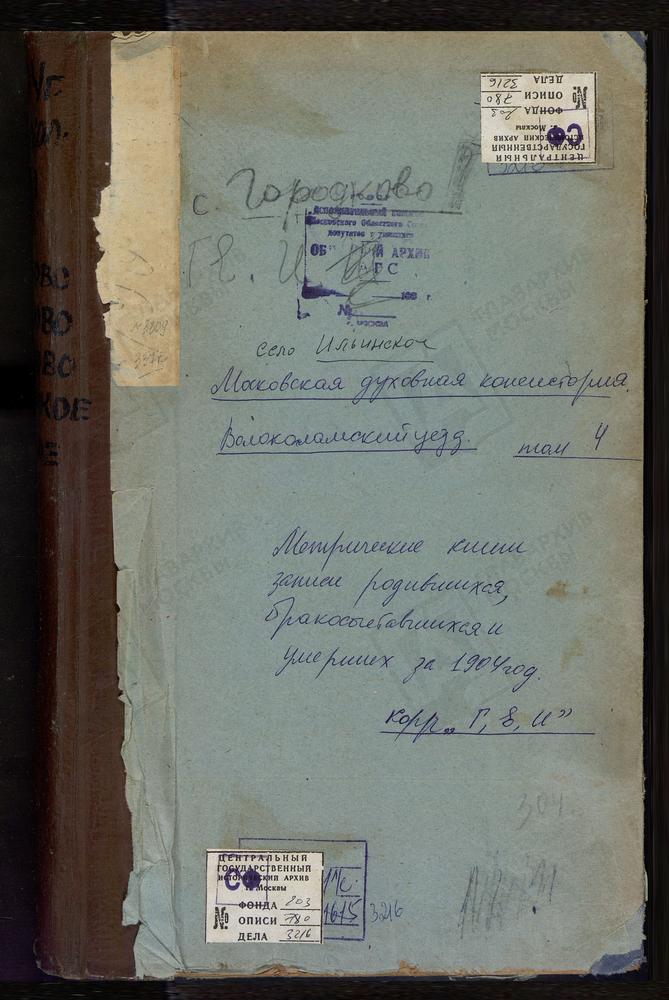 ЦЕНТРАЛЬНЫЙ
ГОСУДАРСТВЕННЫЙ
ИСТОРИЧЕСКИЙ АРХИВ
г. Москвы
СФ
№
ФОНДА 203
ОПИСИ 780
ДЕЛА 3216
с. Городково
Г Е. И
ИСПОЛНИТЕЛЬНЫЙ
Московского Областного
депутатов трудящихся
ОБ Й АРХИВ
198 г.
№
г. МОСКВА
село Ильинское
Московская духовная консистория.
Волоколамский уезд. том 4
Метрические книги
записи родившихся,
бракосочетавшихся и
умерших за 1904 год.
корр. „Г, Е, И”
304
ЦЕНТРАЛЬНЫЙ
ГОСУДАРСТВЕННЫЙ
ИСТОРИЧЕСКИЙ АРХИВ
г. Москвы
СФ
№
ФОНДА 203
ОПИСИ 780
ДЕЛА 3216
1615
3216